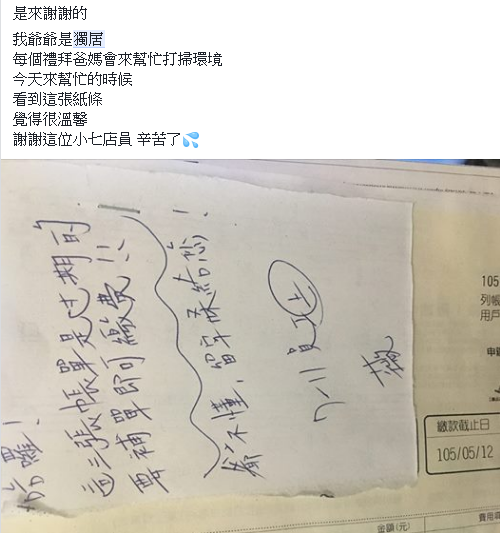 是來謝謝的
我爺爺是獨居
每個禮拜爸媽會來幫忙打掃環境
今天來幫忙的時候
看到這張紙條
覺得很溫馨
謝謝這位小七店員 辛苦了💦
囉！
這三張帳單是過期的
要補單即可繳費!!
爺不懂，留字條給您！
7-11員工
105
列帳
用戶
繳款截止日
105/05/12
金額(元)
費用